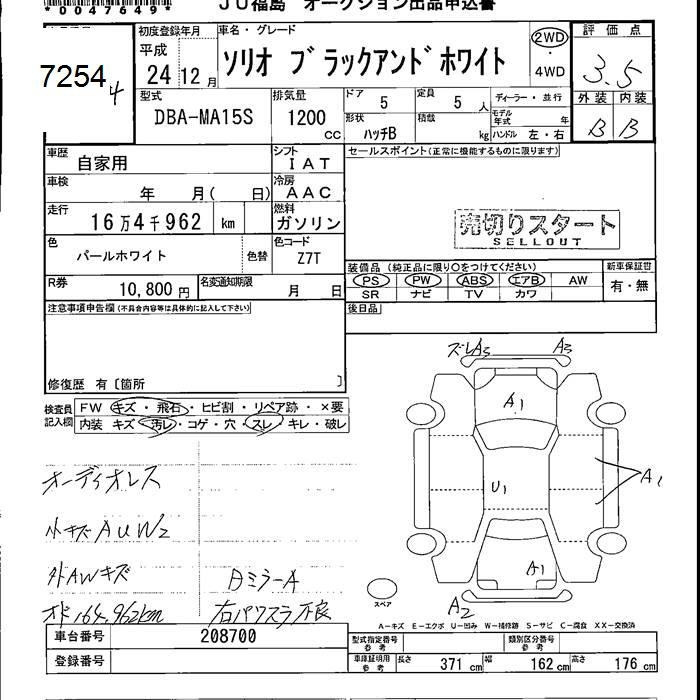 *0047649*
JU福島 オークション出品申込書
7254
4
初度登録年月
平成
24 12月
車名・グレード
ソリオ ブラックアンドホワイト
2WD
・
4WD
評価点
3.5
型式
DBA-MA15S
排気量
1200
cc
ドア
5
定員
5 人
ディーラー・並行
形状
ハッチB
積載
kg
モデル年式 年
ハンドル 左・右
外装 内装
B B
車歴
自家用
シフト
IAT
セールスポイント(正常に機能するものに限ります)
車検
年 月( 日)
冷房
AAC
走行
16万4千962 km
燃料
ガソリン
売切りスタート
SELLOUT
色
パールホワイト
色替
色コード
Z7T
装備品 (純正品に限り○をつけてください)
新車保証書
PS PW ABS エアB AW
SR ナビ TV カワ
有・無
R券
10,800 円
名変通知期限
月 日
後日品
注意事項申告欄(不具合内容等は具体的に記入して下さい)
修復歴 有〔箇所 〕
検査員
記入欄
FW キズ・飛石・ヒビ割・リペア跡・×要
内装 キズ・汚レ・コゲ・穴・スレ・キレ・破レ
オーディオレス
小キズAUW2
外AWキズ
日ミラーA
オド164,962km
右パワスラ不良
ズレA3 A3
A1
U1
A1
A1
A2
スペア
A-キズ E-エクボ U-凹み W-補修跡 S-サビ C-腐食 XX-交換済
車台番号
208700
登録番号
型式指定番号
参考
類別区分番号
参考
車庫証明用
参考
長さ 371 cm 幅 162 cm 高さ 176 cm